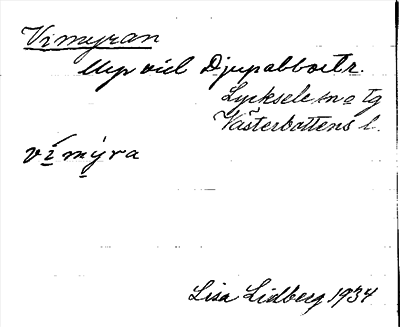 Vimyran
Myr vid Djupabbortr.
Lycksele sn o tg
Västerbottens l.
vi̲my̲ra
Lisa Lidberg 1934